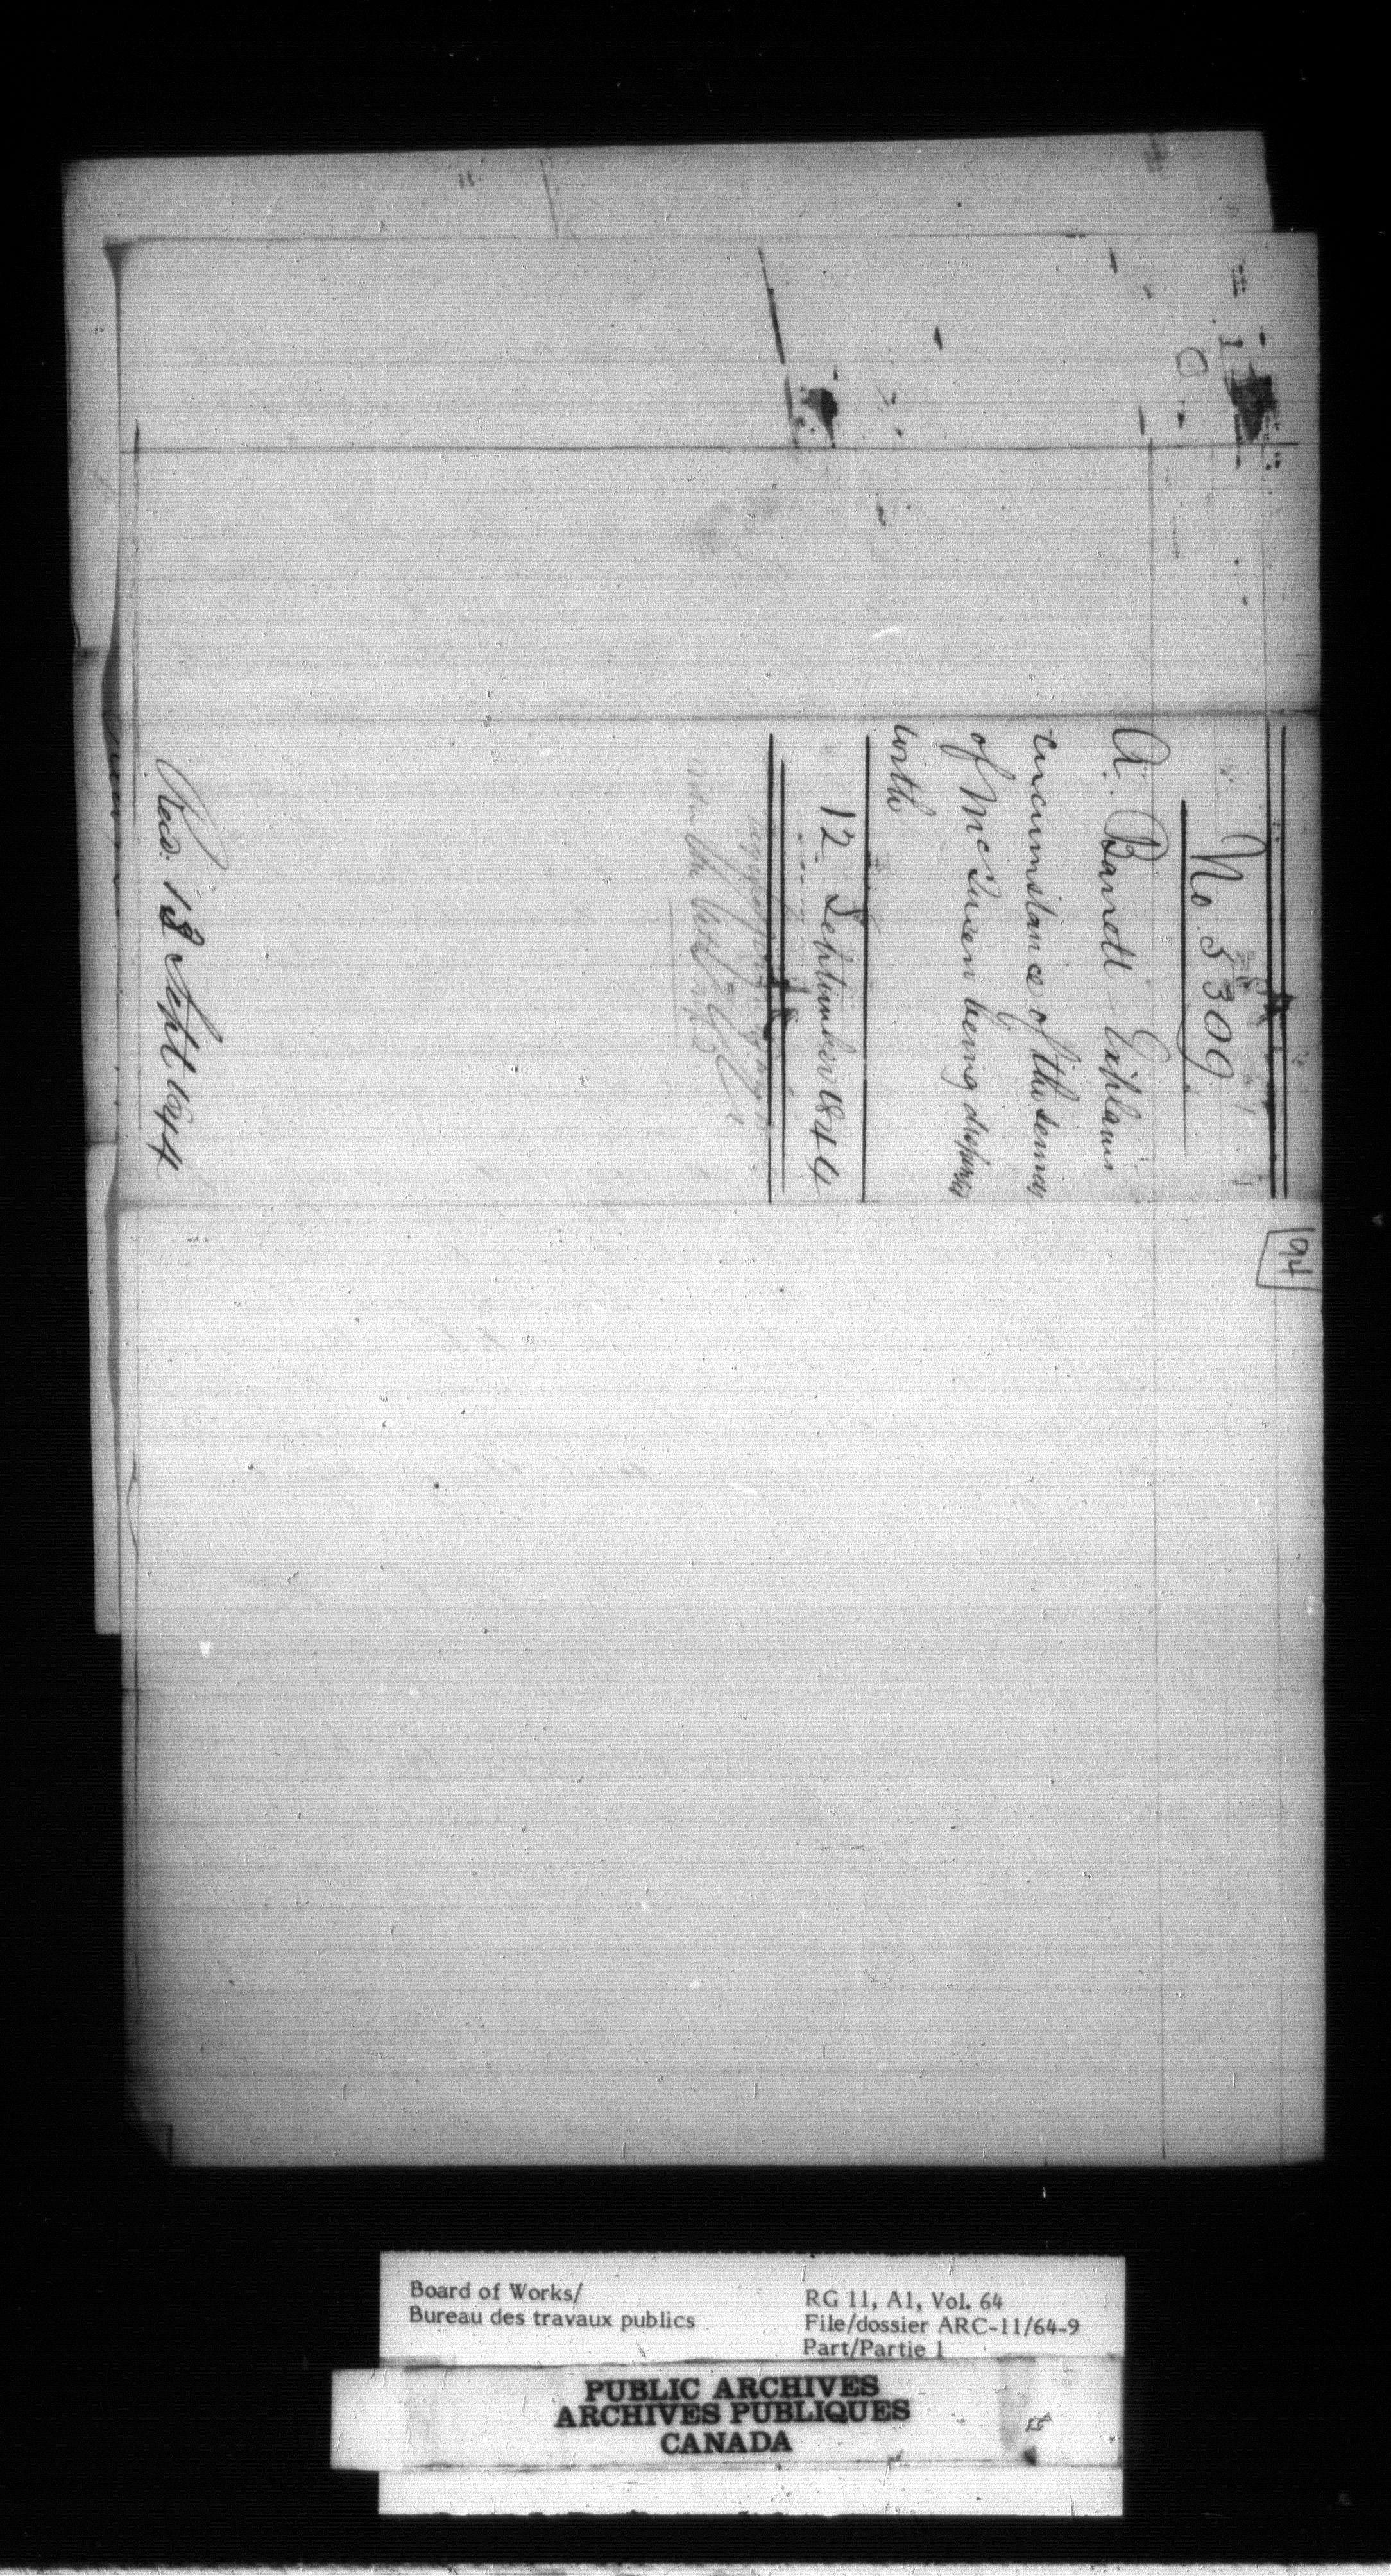 94
No 5309
A. Barrett – Explains
circumstance of the services
of McQueen being dispensed
with
12 September 1844
Recd. 18 Sept 1844
Board of Works/
Bureau des travaux publics
RG 11, A1, Vol. 64
File/dossier ARC-11/64-9
Part/Partie 1
PUBLIC ARCHIVES
ARCHIVES PUBLIQUES
CANADA